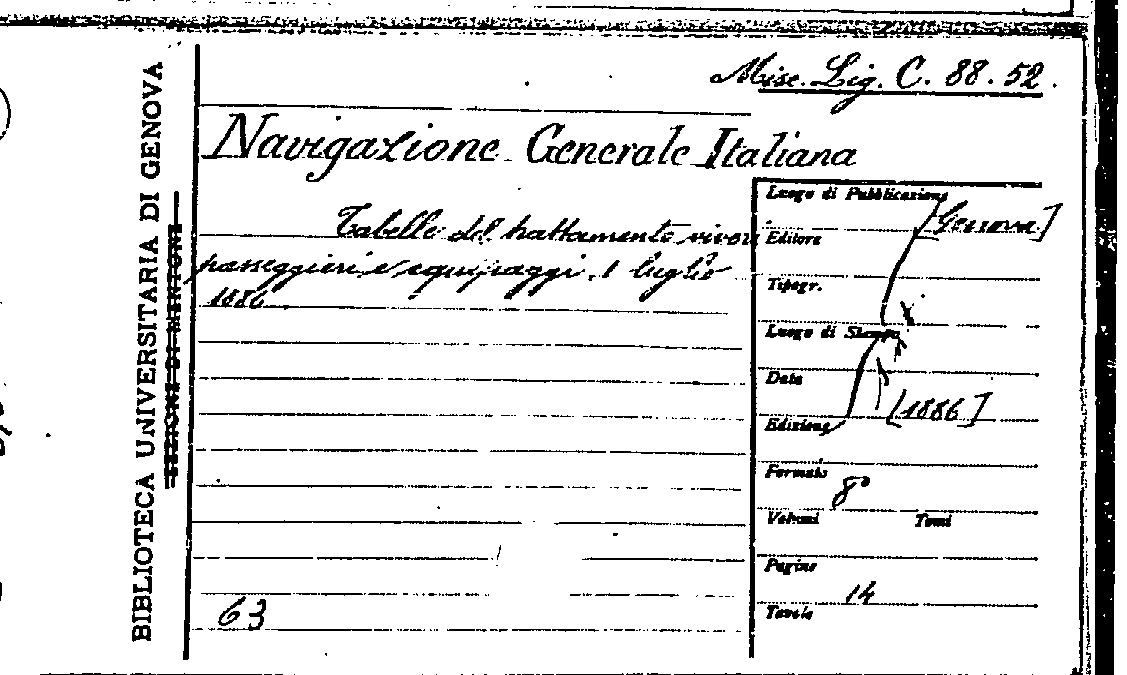 Misc. Lig. C. 88. 52.
BIBLIOTECA UNIVERSITARIA DI GENOVA
SEZIONE DI MENTONE
Navigazione Generale Italiana
Tabelle del trattamento viveri
passeggieri e equipaggi. 1 luglio
1886
Luogo di Pubblicazione
[Genova]
Editore
Tipogr.
Luogo di Stampa
Data
[1886]
Edizione
Formato
8°
Volumi Tomi
Pagine
14
Tavole
63